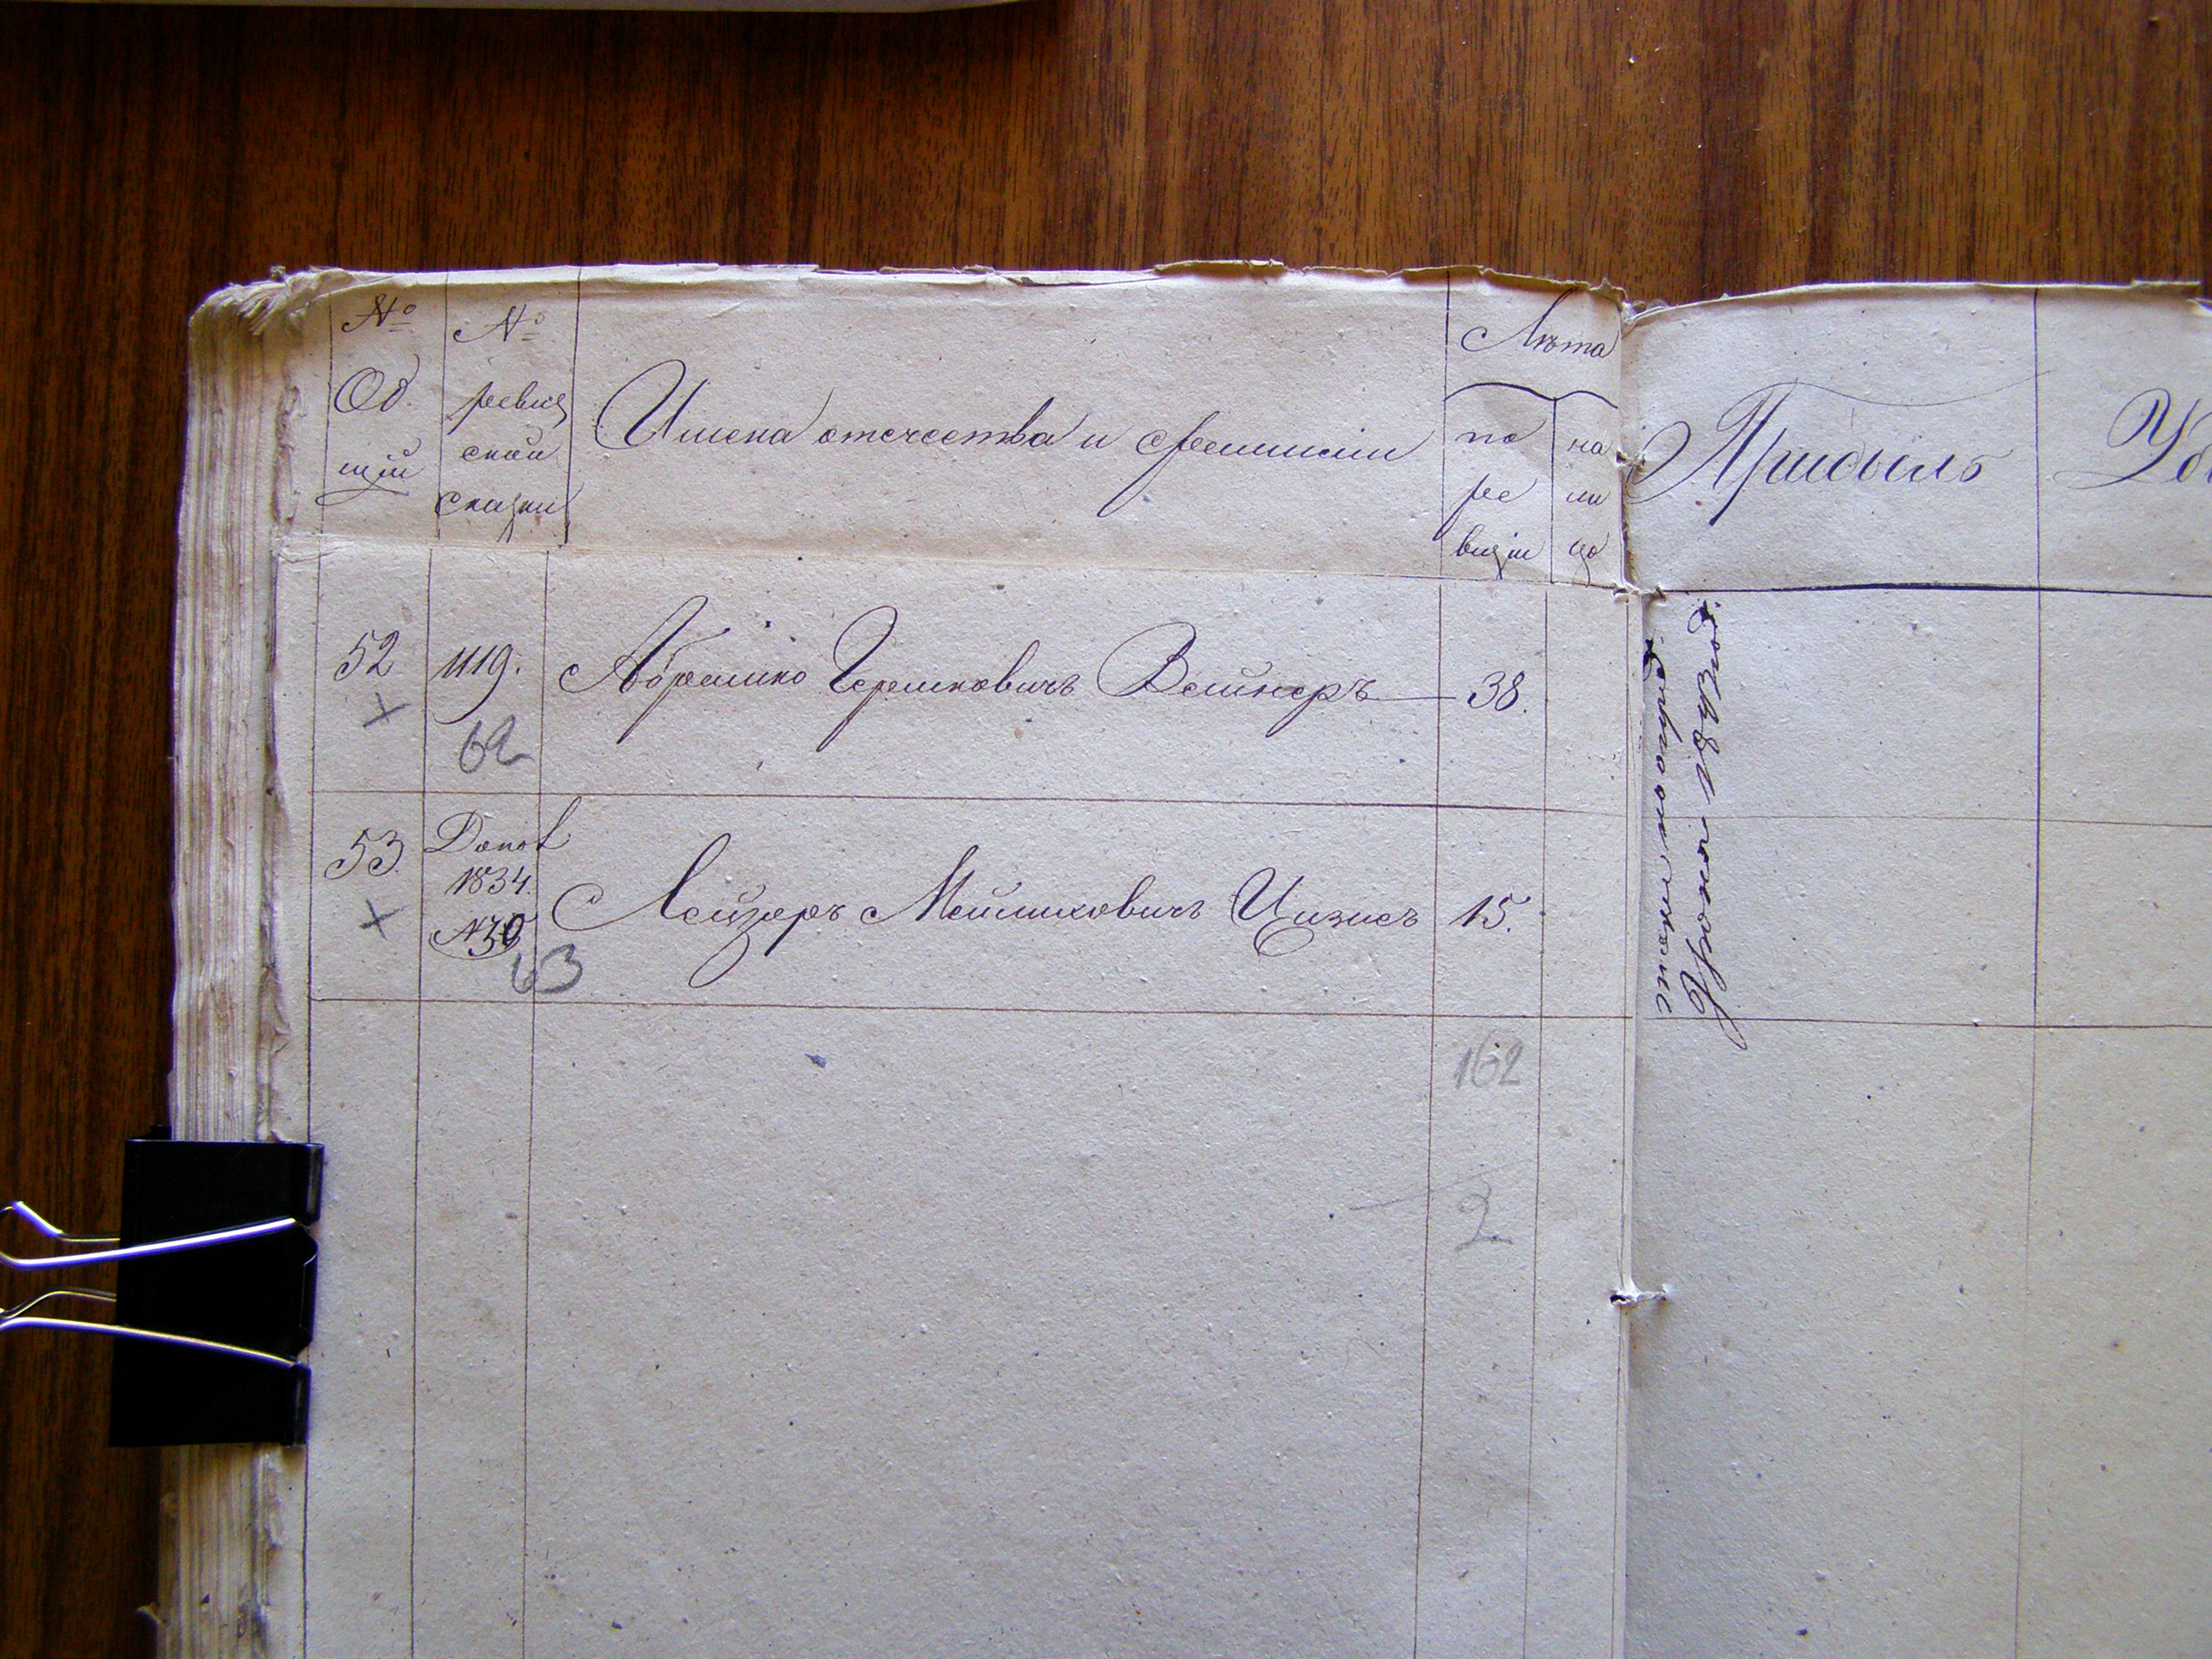 №
Об
щій
№
ревиз
ской
сказки
Имена отечества и фамиліи
Лѣта
по
ре
визіи
на
ли
цо
Прибыль
Уб
52
1119.
Абрамко Гершковичъ Вайнеръ
38.
62
53
Допол
1834.
№30
Лейзеръ Мейлиховичъ Цизисъ
15.
63
162
2